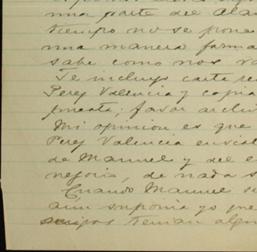 una parte del
tiempo no se pone
una manera forma
sabe como nos va
Te incluyo carta
Perez Valencia y copia
puesta; favor archi
Mi opinion es que
Perez Valencia
de Manuel y del e
negocio, de nada s
Cuando Manuel se
aun suponia yo que
amigos tenian algu